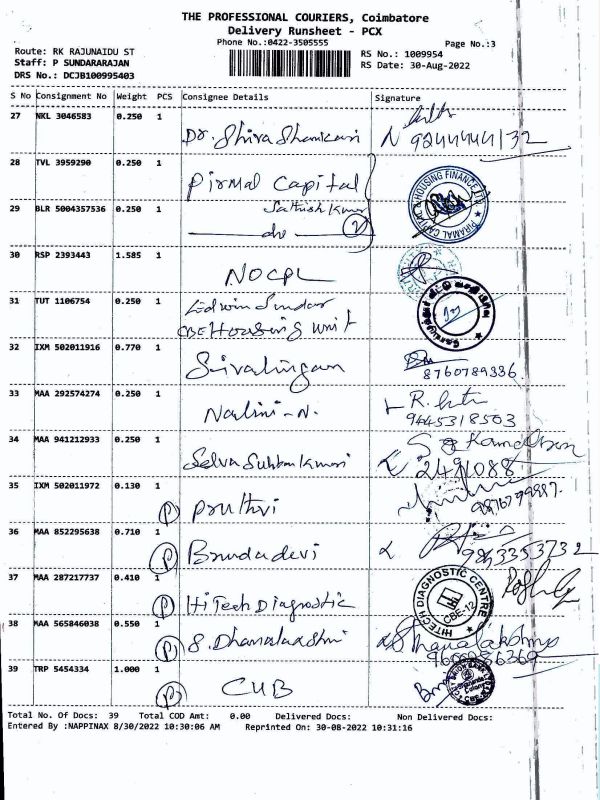 THE PROFESSIONAL COURIERS, Coimbatore
Delivery Runsheet - PCX
Phone No.:0422-3505555
Page No.:3
Route: RK RAJUNAIDU ST
Staff: P SUNDARARAJAN
DRS No.: DCJB100995403
RS No.: 1009954
RS Date: 30-Aug-2022
S No Consignment No Weight PCS Consignee Details Signature
27 NKL 3046583 0.250 1
Dr. Shiva Shankari N 9244444132
28 TVL 3959290 0.250 1
Pirmal Capital
PIRAMAL CAPITAL & HOUSING FINANCE LTD
29 BLR 5004357536 0.250 1
Sathish Kumar
do 2
30 RSP 2393443 1.585 1
NOCPL
31 TUT 1106754 0.250 1
Edwin Sundar
CBE Housing unit
32 IXM 502011916 0.770 1
Sivalingam
8760789336
33 MAA 292574274 0.250 1
Nalini - N.
9445318503
34 MAA 941212933 0.250 1
Selva Subbu Kumari
2491088
35 IXM 502011972 0.130 1
P Pruthvi
36 MAA 852295638 0.710 1
P Brundadevi
37 MAA 287217737 0.410 1
P HiTech Diagnostic
HITECH DIAGNOSTIC CENTRE
CBE-12
38 MAA 565846038 0.550 1
P S. Dhanalakshmi Dhanalakshmi
39 TRP 5454334 1.000 1
P CUB
Total No. Of Docs: 39 Total COD Amt: 0.00 Delivered Docs: Non Delivered Docs:
Entered By :NAPPINAX 8/30/2022 10:30:06 AM Reprinted On: 30-08-2022 10:31:16